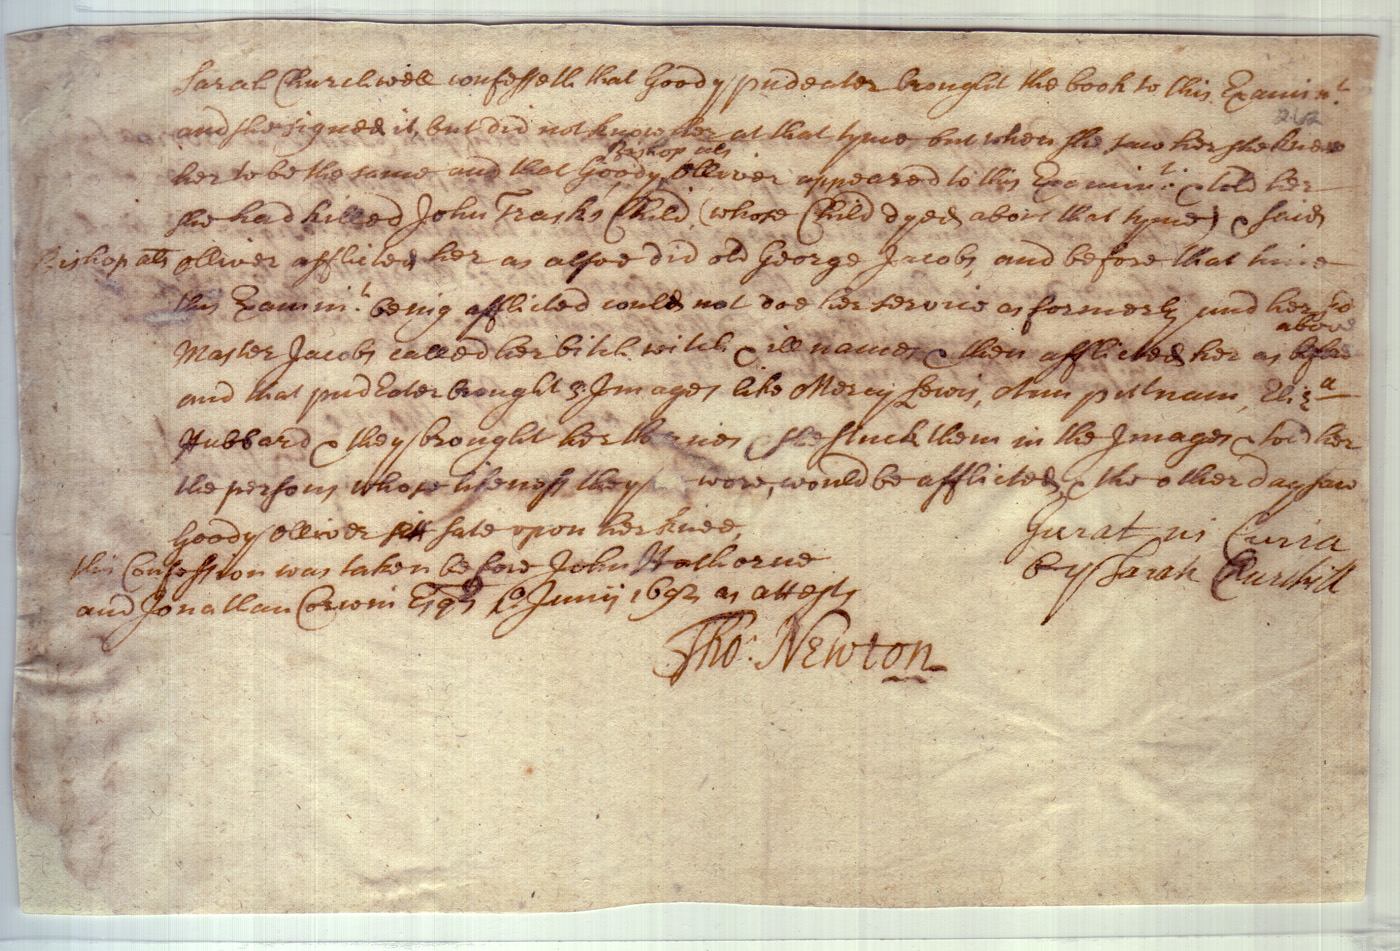 Sarah Churchwell confesseth that Goody pudeater brought the book to this Examint.
and she signed it, but did not know her at that tyme, but when she saw her she knew
Bishop als
her to be the same and that Goody Olliver appeared to this Examint. & told her
she had killed John Trasks Child, (whose Child dyed about that tyme) & said
Bishop als Olliver afflicted her as alsoe did old George Jacobs, and before that time
this Examint. being afflicted could not doe her service as formerly and her sd
above
Master Jacobs called her bitch witch & ill names & then afflicted her as before
and that pudEater brought 3 Images like Mercy Lewis, Ann putnam, Eliza
Hubbard & they brought her thornes & she stuck them in the Images & told her
the persons whose likeness they were, would be afflicted, & the other day saw
Goody Olliver sitt sate upon her knee,
Jurat in Curia
this Confession was taken before John Hathorne
by Sarah Churchill
and Jonathan Corwin Esqrs 1o Junij 1692 as attests
Tho: Newton
262